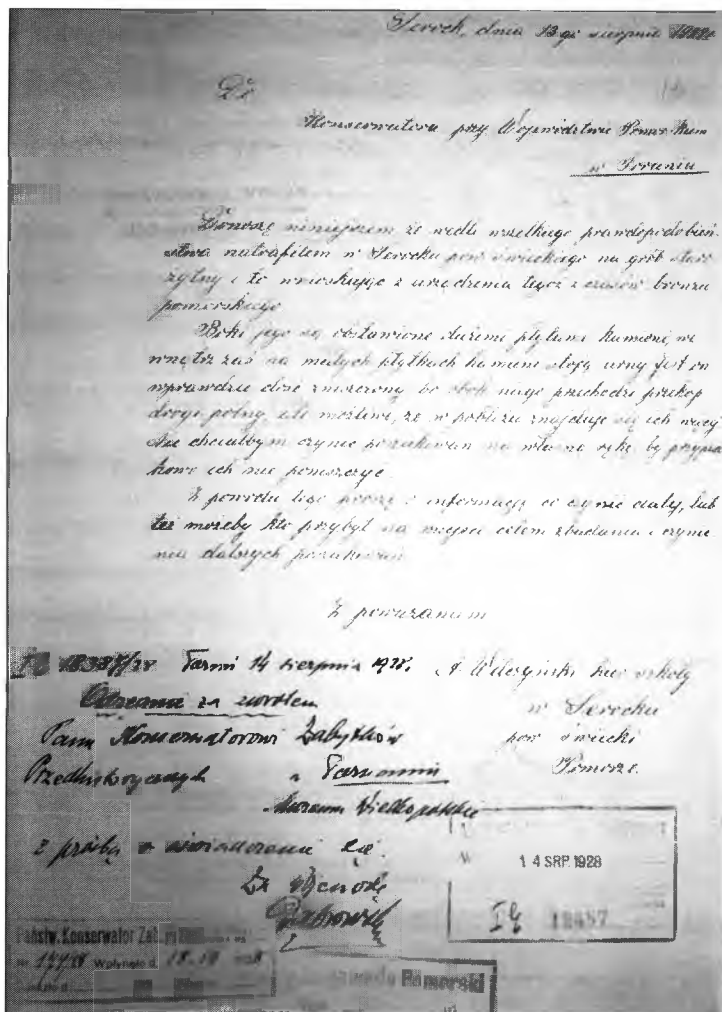 Serock, dnia 13-go sierpnia 1928
Do
Konserwatora przy Województwie Pomorskim
w Toruniu
Donoszę niniejszem że wedle wszelkiego prawdopodobień-
stwa natrafiłem w Serocku pow świeckiego na grób staro
żytny i to wnioskując z urządzenia tegoż z czasów bronzu
pomorskiego.
Boki jego są obstawione dużemi płytami kamieni, we
wnątrz zaś na małych płytkach kamieni stoją urny. Jest on
wprawdzie dość zniszczony bo obok niego przechodzi przekop
drogi polnej, ale możliwe, że w pobliżu znajduje się ich więcej
chciałbym czynić poszukiwań na własną rękę by przypad
kowo ich nie pomszczyć.
Z powodu tego proszę o informację co czynić dalej, lub
też możeby kto przybył na miejsce celem zbadania i czynie
nia dalszych poszukiwań.
Z poważaniem
14 sierpnia 1928. A. kier szkoły
za zwrotem w Serocku
Panu Konserwatorowi Zabytków pow świecki
Przedhistorycznych Pomorze.
Muzeum Wielkopolskie
z prośbą o się.
Za Wojewodę
14 SRP. 1928
Państw. Konserwator Zab.
Nr. Wpłynęło d.
Pomorski